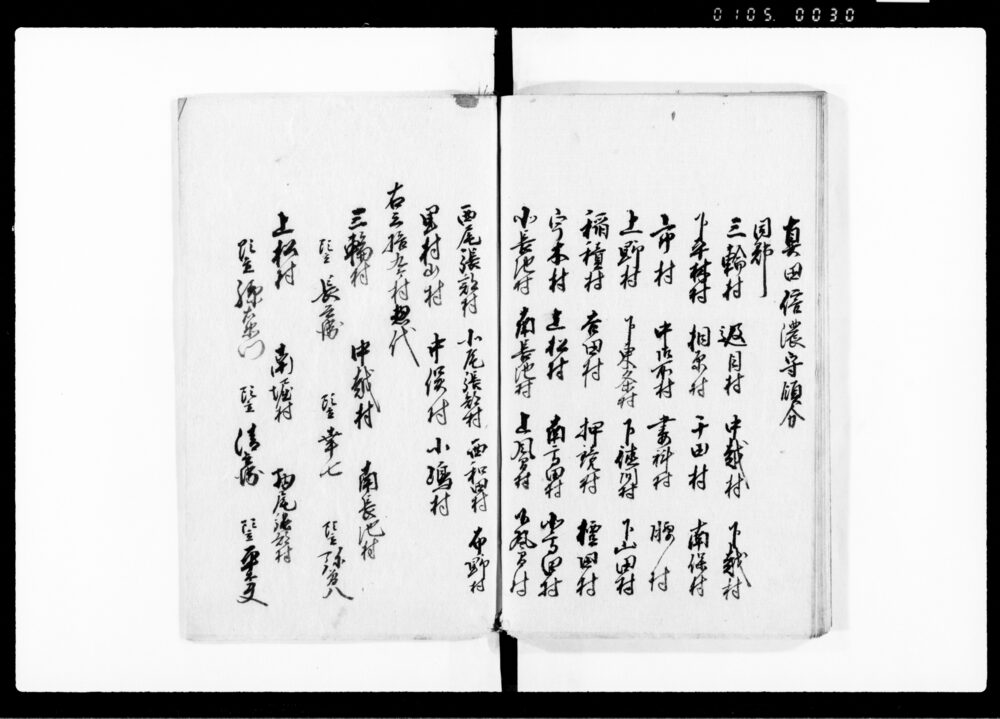 0105. 0030
真田信濃守領分
同郡
三輪村 返目村 中越村 下越村
下宇木村 相木村 千田村 南俣村
市村 中御所村 妻科村 腰村
上野村 下東条村 下徳間村 山田村
稲積村 吉田村 押鐘村 檀田村
宇木村 上松村 南高田村 北高田村
小長池村 南長池村 上風間村 下風間村
西尾張部村 北尾張部村 西和田村 布野村
里村山村 中俣村 小嶋村
右三拾九ヶ村惣代
三輪村 中越村 南長池村
長蔵 幸七 弥八
上松村 南堀村 西尾張部村
源左衛門 清蔵